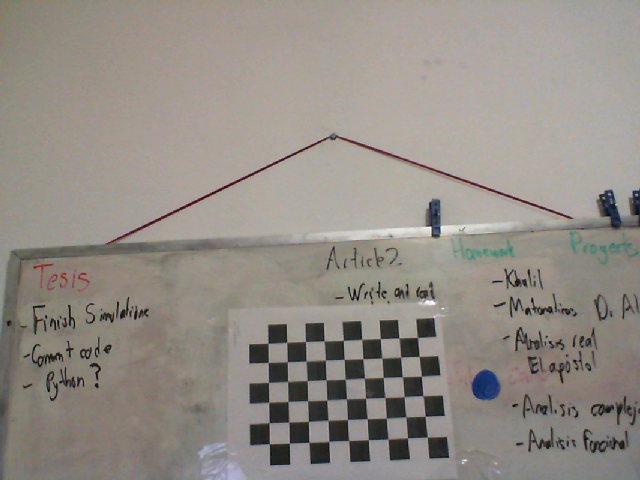 Tesis
- Finish Simulations
- Comment code
- Python?
Article 2
- Write and read
Homework
- Khalil
- Analisis real
El apostol
- Analisis complejo
- Analisis Funcional
Proyects